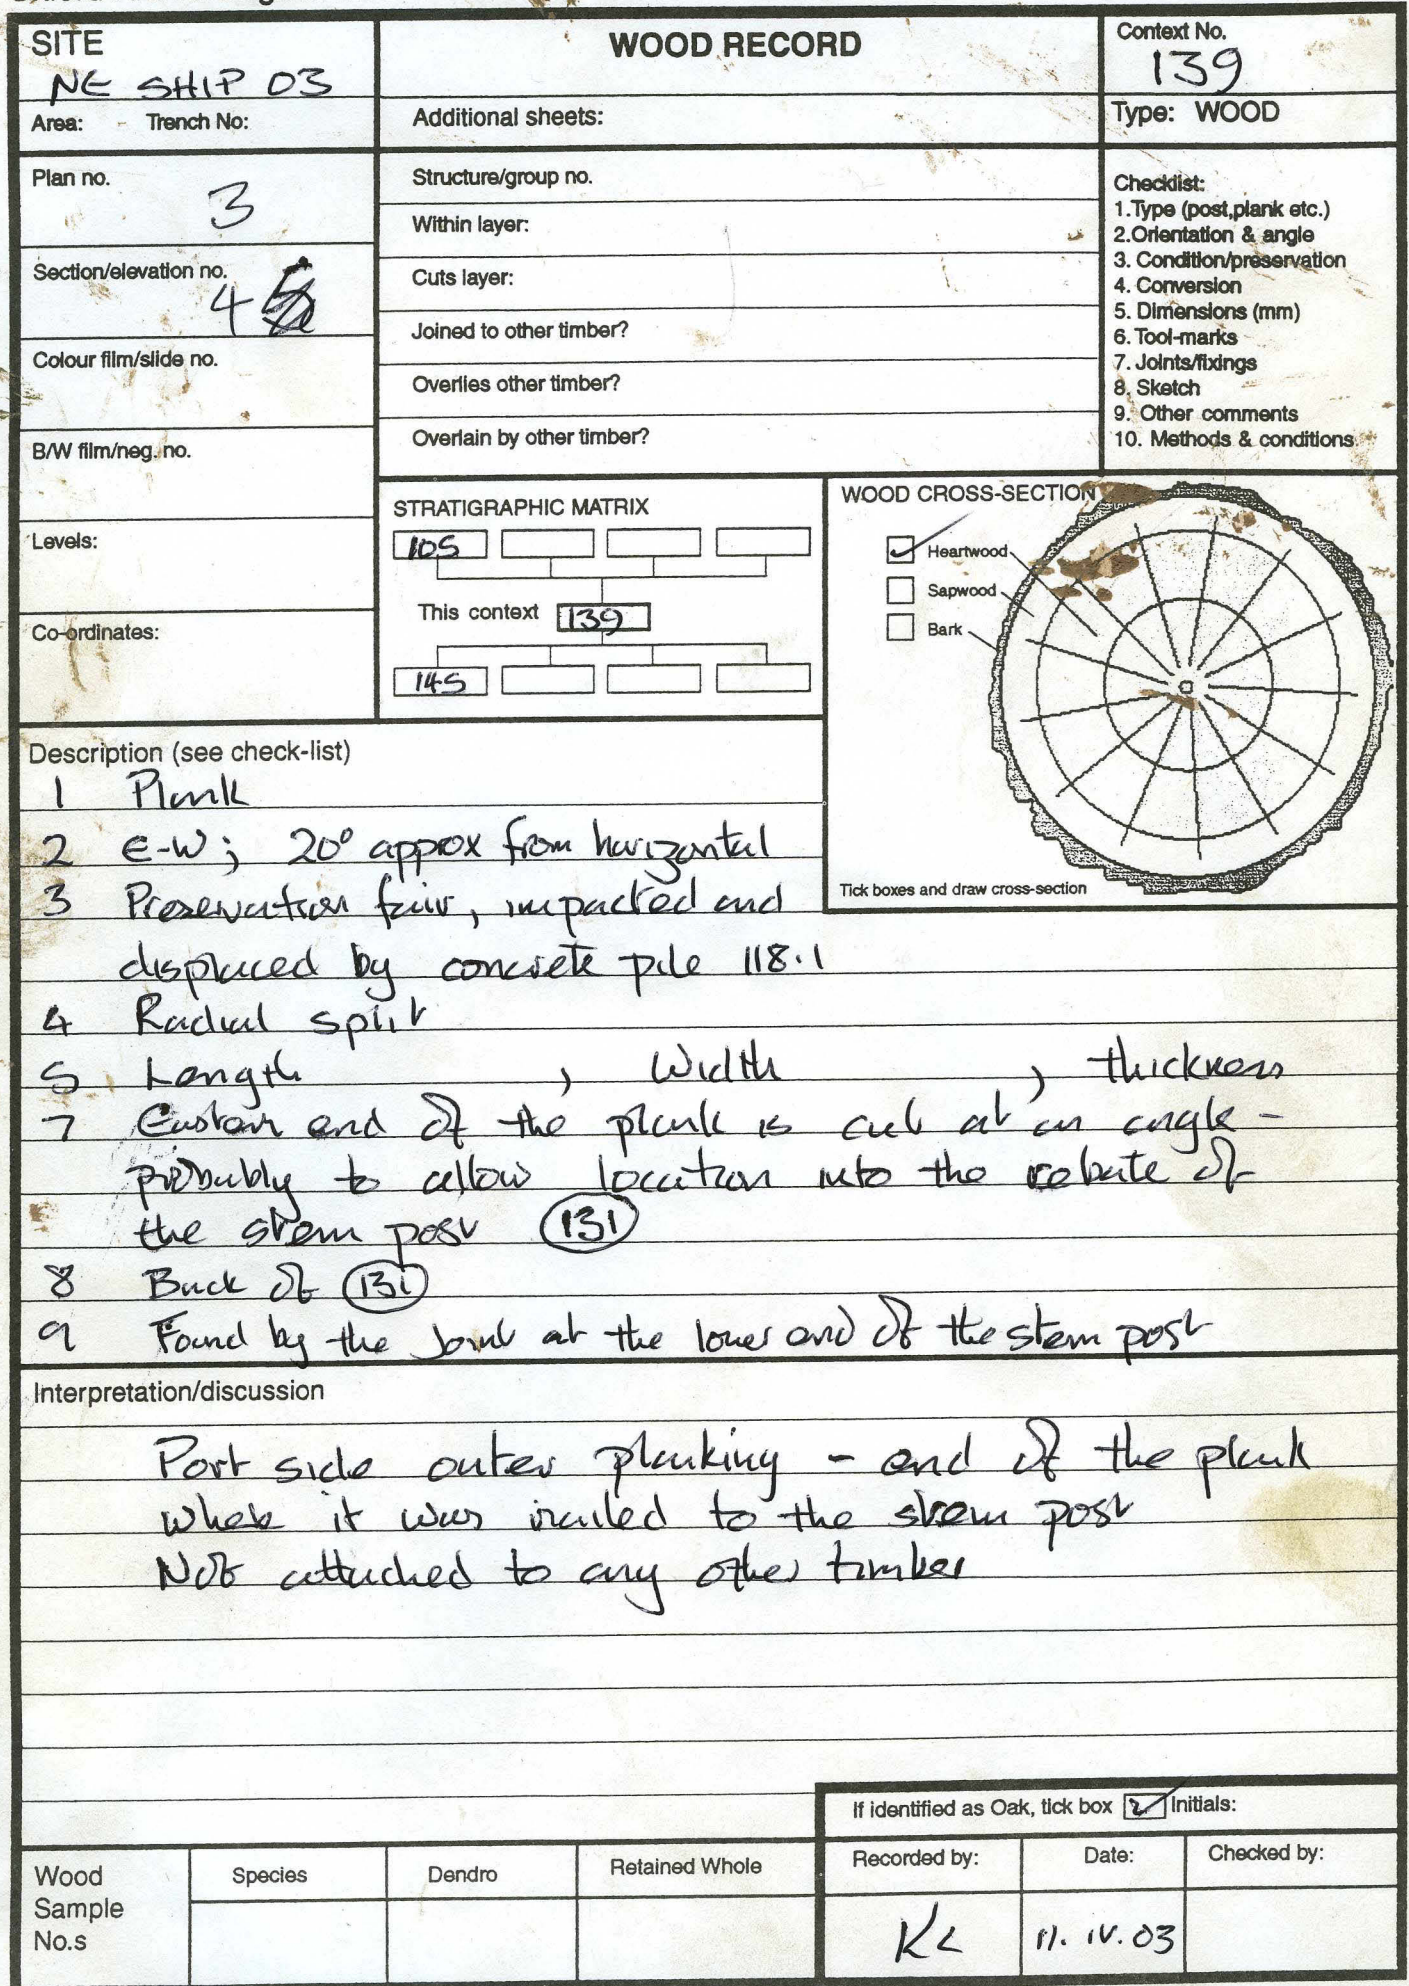 SITE
NE SHIP 03
WOOD RECORD
Context No.
139
Area: Trench No:
Additional sheets:
Type: WOOD
Plan no.
3
Structure/group no.
Within layer:
Section/elevation no.
4
Cuts layer:
Joined to other timber?
Colour film/slide no.
Overlies other timber?
Overlain by other timber?
B/W film/neg. no.
Checklist:
1.Type (post,plank etc.)
2.Orientation & angle
3. Condition/preservation
4. Conversion
5. Dimensions (mm)
6. Tool-marks
7. Joints/fixings
8. Sketch
9. Other comments
10. Methods & conditions
Levels:
Co-ordinates:
STRATIGRAPHIC MATRIX
105
This context 139
145
WOOD CROSS-SECTION
Heartwood
Sapwood
Bark
Tick boxes and draw cross-section
Description (see check-list)
1 Plank
2 E-W; 20° approx from horizontal
3 Preservation fair, impacted and
displaced by concrete pile 118.1
4 Radial split
5 Length , Width , thickness
7 Eastern end of the plank is cut at an angle -
probably to allow location into the rebate of
the stem post 131
8 Back of 131
9 Found by the joint at the lower end of the stem post
Interpretation/discussion
Port side outer planking - end of the plank
where it was nailed to the stem post
Not attached to any other timber
If identified as Oak, tick box Initials:
Wood
Sample
No.s
Species
Dendro
Retained Whole
Recorded by:
KL
Date:
11.IV.03
Checked by: